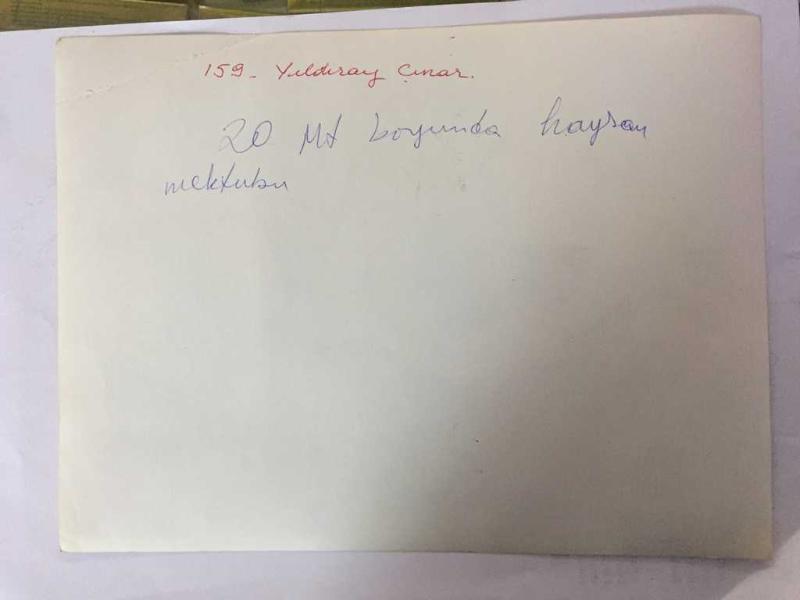 159- Yıldıray Çınar.
20 Mt boyunda hayran
mektubu